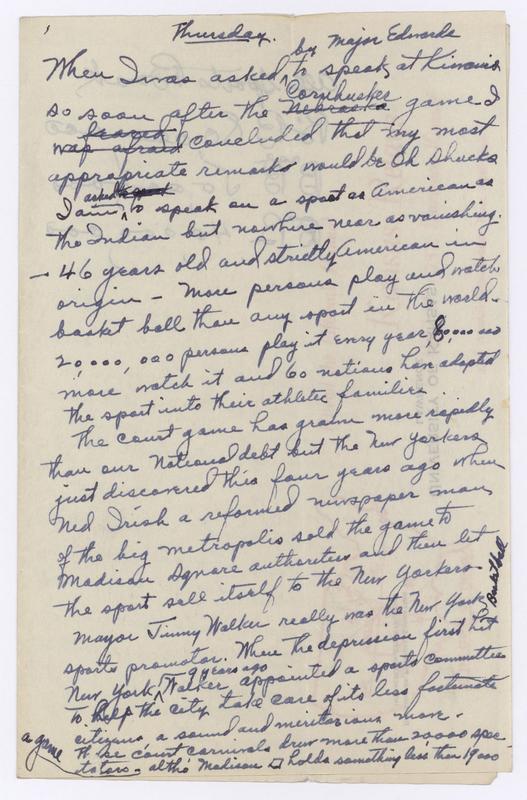 Thursday.
by Major Edwards
When I was asked to speak at Kiwanis
Cornhusker
so soon after the Nebraska game I
feared
was afraid concluded that my most
appropriate remarks would be Oh Shucks
asked
I am to speak on a sport as American as
the Indian but nowhere near as vanishing.
- 46 years old and strictly American in
origin - More persons play and watch
basket ball than any sport in the world.
20,000,000 persons play it every year, 80,000,000
more watch it and 60 nations have adopted
the sport into their athletic families
The court game has grown more rapidly
than our National debt but the New Yorkers
just discovered this four years ago when
Ned Irish a reformed newspaper man
of the big metropolis sold the game to
Madison Square authorities and then let
the sport sell itself to the New Yorkers
Mayor Jimmy Walker really was the New York Basketball
sports promotor. When the depression first hit
9 years ago
New York, Walker appointed a sports committee
to help the city take care of its less fortunate
citizens a sound and meritorious move.
These court carnivals drew more than 20000 spec-
a game
tators - altho Madison □ holds something less than 19000